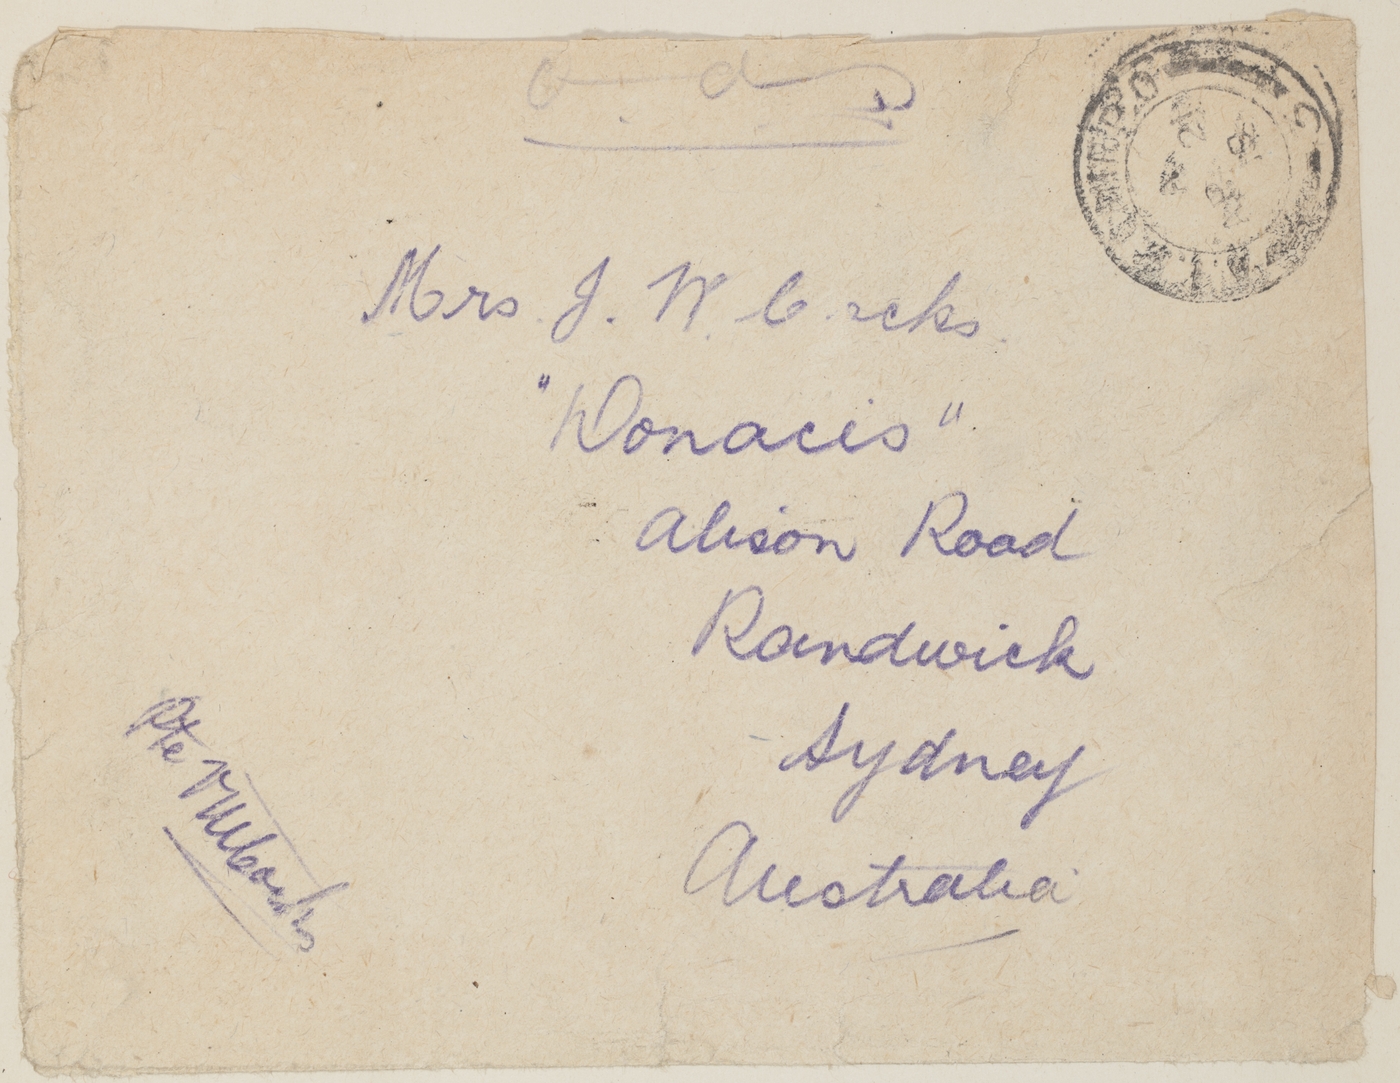 O A S
Mrs J. W. Cocks
"Donacis"
Alison Road
Randwick
Sydney
Australia
Pte V W Cocks